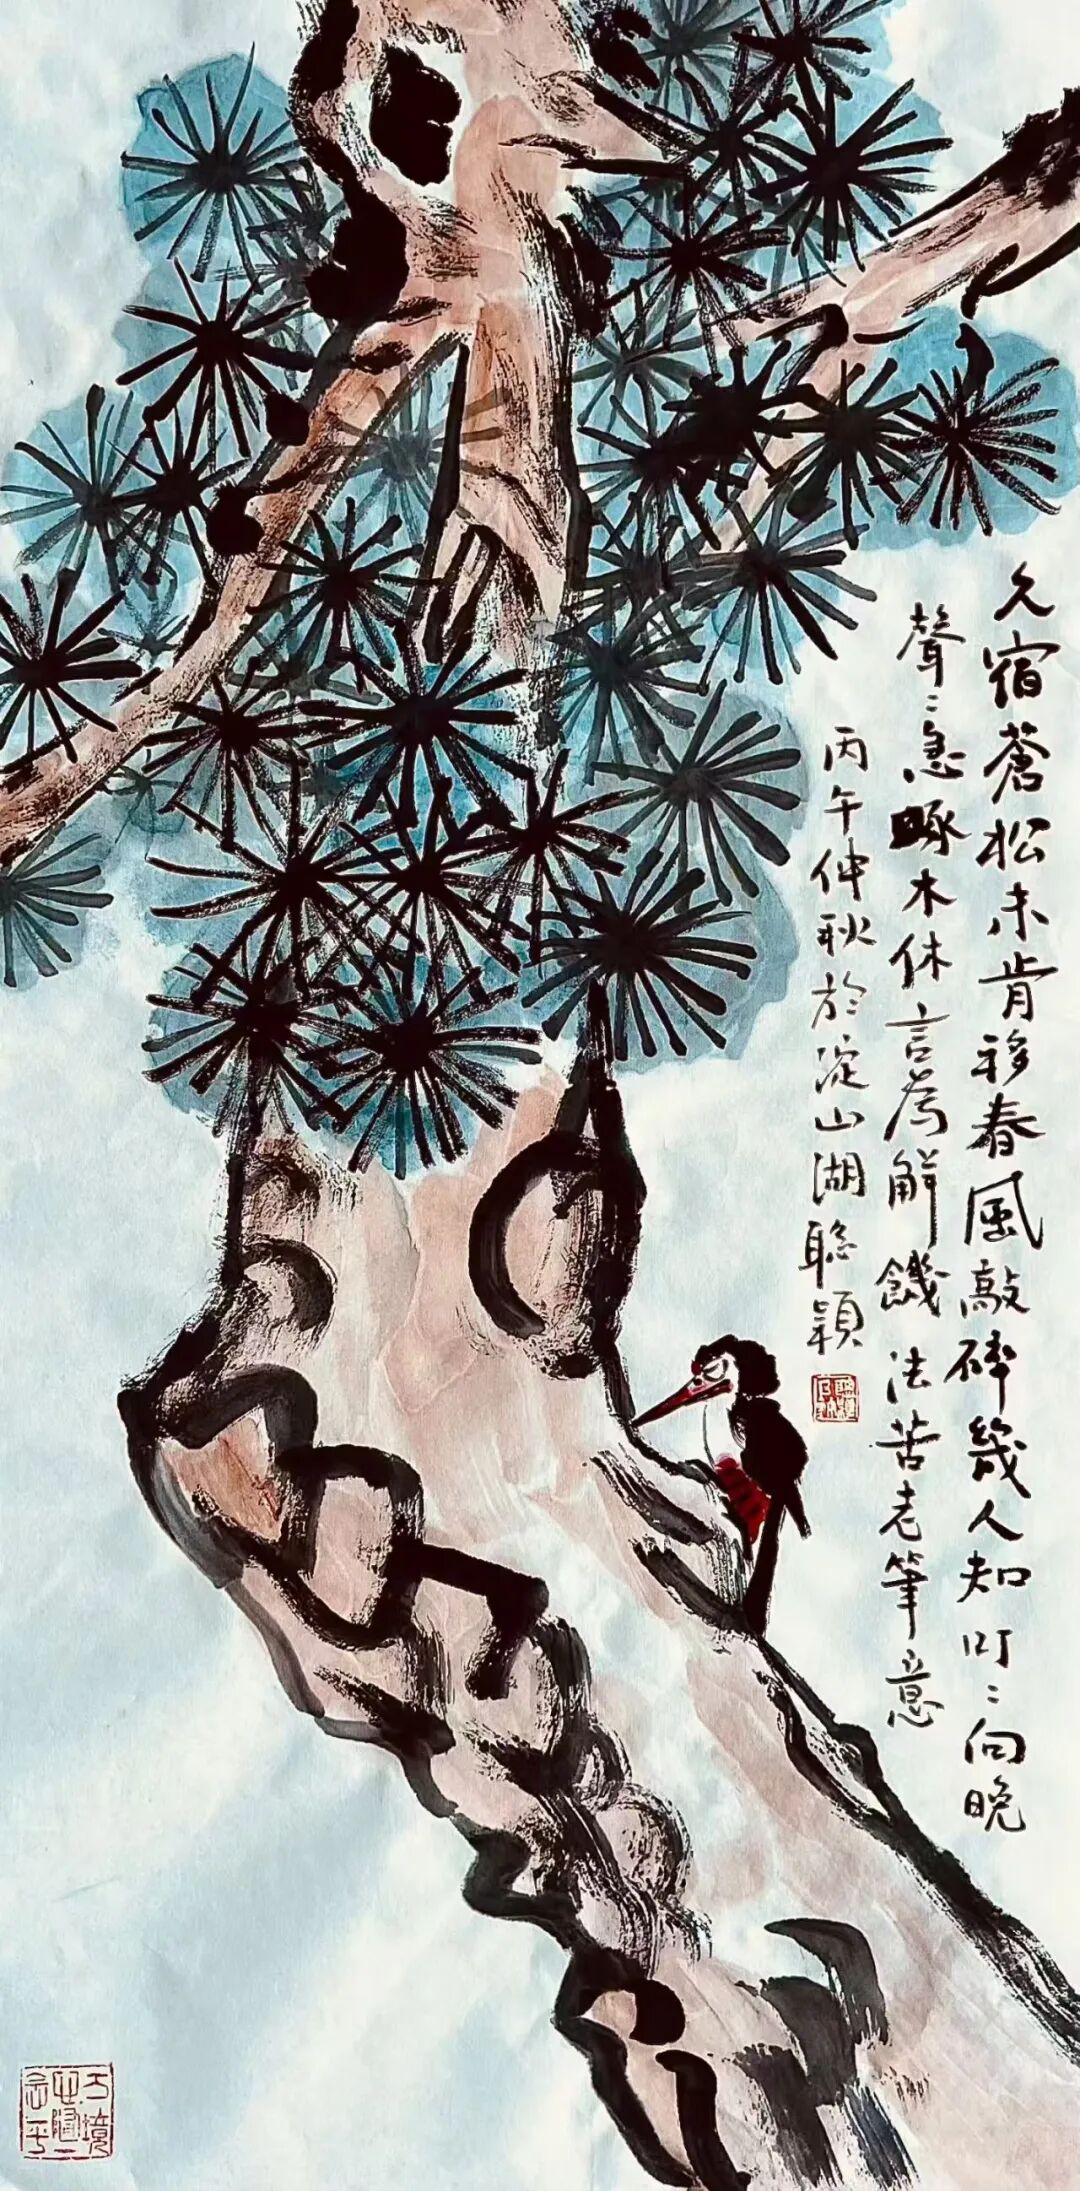 久宿蒼松未肯移春風敲碎幾人知叮〻向晚
聲〻急啄木休言為解饑法苦老筆意
丙午仲秋於淀山湖聰穎